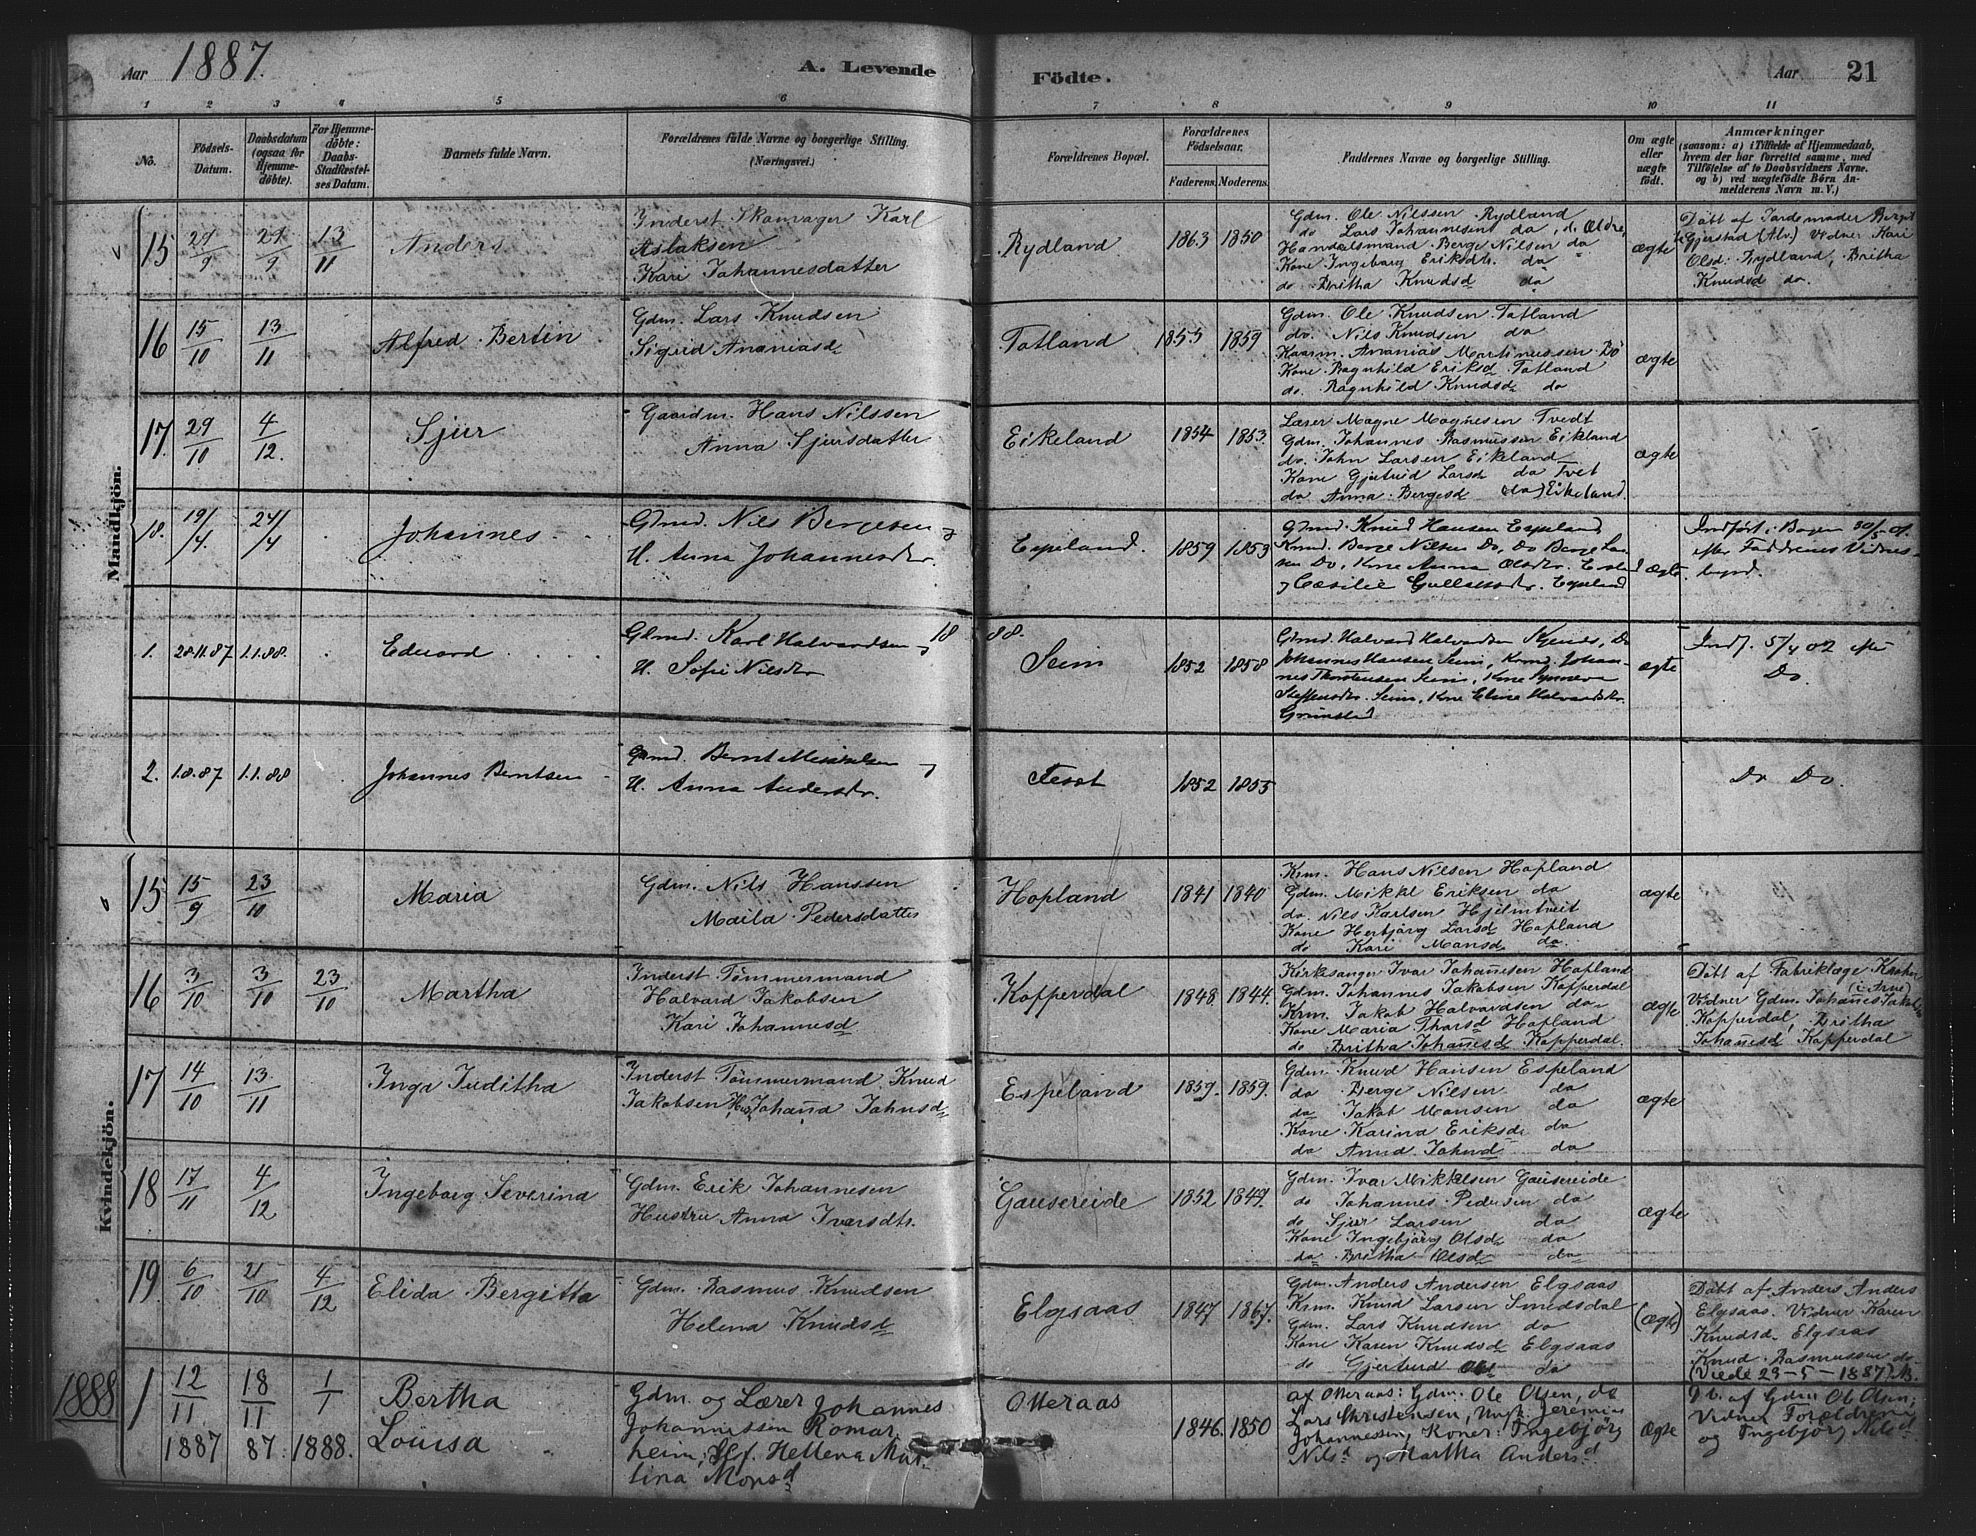 Aar 1887. A. Levende Födte. Aar 21
1 2 3 4 5 6 7 8 9 10 11
No.
Födsels-
Datum.
Daabsdatum
(ogsaa for
Hjemme-
döbte).
For Hjemme-
döbte:
Daabs-
Stadfæstel-
ses Datum.
Barnets fulde Navn.
Forældrenes fulde Navne og borgerlige Stilling.
(Næringsvei.)
Forældrenes Bopæl.
Forældrenes
Födselsaar.
Faderens. Moderens.
Faddernes Navne og borgerlige Stilling.
Om ægte
eller
uægte
födt.
Anmærkninger
(saasom: a) i Tilfælde af Hjemmedaab,
hvem der har forrettet samme, med
Tilföielse af to Daabsvidners Navne.
og b) ved uægtefödte Börn An-
melderens Navn m. V.)
Mandkjön.
15 29/9 29/9 13/11 Anders
Inderst Skomager Karl
Aslaksen
Kari Johannesdatter
Rydland 1863 1850
Gdm. Ole Nilssen Rydland
do Lars Johannesen do, d. Ældre,
Handelsmand Berge Nilsen do
Kone Ingeborg Eriksdtr. do
do Britha Knudsd do
ægte
Döbt af Jordemoder Berget
Gjerstad (Alv.) Vidner Kari
Olsd. Rydland, Britha
Knudsd do.
16 15/10 13/11 Alfred Bertin
Gdm. Lars Knudsen
Sigrid Ananiasd
Totland 1855 1859
Gdm. Ole Knudsen Totland
do. Nils Knudsen do
Kaarm. Ananias Martinussen Bö
Kone Ragnhild Eriksd Totland
do. Ragnhild Knudsd do
ægte
17 29/10 4/12. Sjur
Gaardm. Hans Nilssen
Anna Sjursdatter
Eikeland 1854 1853.
Lærer Magne Magnesen Tvedt
Gdm. Johannes Rasmussen Eikland
do. John Larsen Eikeland
Kone Gjertrud Larsd do Tvet
do Anna Bergesd do Eikeland.
ægte
18. 19/4. 24/4 Johannes
Gdmd. Nils Bergesen og
H. Anna Johannesdtr.
Espeland. 1859 1853
Gdmd. Knud Hansen Espeland,
Krmd. Berge Nilsen Do, Do Berge Lar-
sen Do, Kone Anna Olsdtr. Espeland
og Cæsilie Gullaksdtr. Espeland
ægte.
Indfört i Bogen 30/5 01.
efter Faddrenes Vidnes-
byrd.
1888.
1. 28.11.87 1.1.88. Edvard
Gdmd. Karl Halvardsen og
H. Sofie Nilsdtr
Seim 1852 1858
Gdmd. Halvard Halvardsen Kjenes, Do
Johannes Hansen Seim, Krmd. Johan-
nes Thorstensen Seim, Kone Synneva
Steffensdtr. Seim, Kone Eline Halvardsdtr.
Grimstad
ægte
Indf. 5/4 02 efter
Do.
2. 1.8.87 1.1.88 Johannes Berntsen
Gdmd. Bernt Mikkelsen og
H. Anna Andersdtr.
1852 1855
Do Do.
Kvindekjön.
15 15/9 23/10 Maria
Gdm. Nils Hanssen
Maila Pedersdatter
Hopland 1841 1840
Krm. Hans Nilsen Hopland
Gdm. Mikkl Eriksen do
do. Nils Karlsen Hjelmtveit
Kone Herbjörg Larsd Hopland
do Kari Monsd do.
ægte
16 3/10 3/10 23/10 Martha
Inderst Tömmermand
Halvard Jakobsen
Kari Johannesd
Kopperdal 1848 1844.
Kirkesanger Ivar Johannesen Hopland
Gdm. Johannes Jakobsen Kopperdal
Krm. Jakob Halvardsen do
Kone Maria Thorsd Hopland
do Britha Johannesd Kopperdal.
ægte
Döbt af Fabriklæge Krohn
(i Arne)
Vidner Gdm. Johannes Jakobs
Kopperdal, Britha
Johannesd Kopperdal
17 14/10 13/11 Inga Juditha
Inderst Tömmermand Knud
Jakobsen H. Johanna Johnsd
Espeland 1857. 1859.
Gdm. Knud Hansen Espeland
do Berge Nilsen do
do Jakob Monsen do
Kone Karina Eriksd do
do Anna Johnd do
ægte
18 17/11 4/12 Ingeborg Severina
Gdm. Erik Johannesen
Hustru Anna Ivarsdtr.
Gausereide 1852 1849.
Gdm. Ivar Mikkelsen Gausereide
do Johannes Pedersen do
do Sjur Larsen do
Kone Ingebjörg Olsd do
do Britha Olsd do
ægte
19. 6/10 21/10 4/12 Elida Bergitta
Gdm. Rasmus Knudsen
Helena Knudsd
Elgsaas 1847 1867.
Gdm. Anders Andersen Elgsaas
Krm. Knud Larsen Smedsdal
Gdm. Lars Knudsen do
Kone Karen Knudsd Elgsaas
do Gjertrud Olsd do
(ægte)
Döbt af Anders Anders
Elgsaas. Vidner Karen
Knudsd. Elgsaas
Knud Rasmussen do
(Viede 29-5-1887)
1888
1 12/11 1887 18/11 87. 1/1 1888. Bertha
Louisa
Gdm. og Lærer Johannes
Johannessen Romar
heim, Hf. Hellena Mar-
tina Monsd
Otteraas 1846. 1850
af Otteraas: Gdm. Ole Olsen, do
Lars Christensen, Ungk. Jeremias
Johannessen, Koner: Ingebjörg
Nilsd og Martha Andersd
Ægte
Db. af Gdm Ole Olsen;
Vidner Forældrene
og Ingebjörg Nilsd